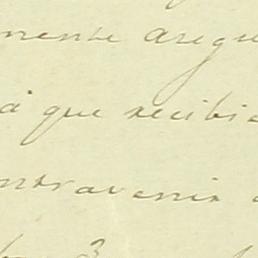 mente asegu
á que recibie
ntravenir